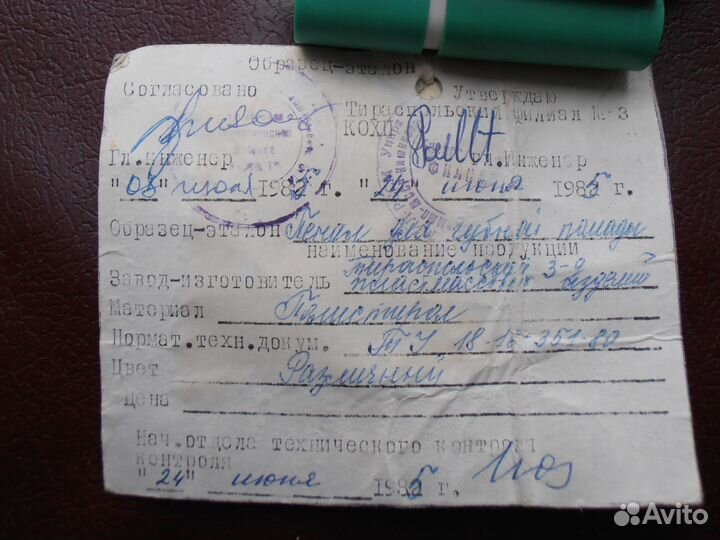 Образец-эталон
Согласовано Утверждаю
Тираспольский филиал №3
КОХП
Гл.инженер Гл.Инженер
"03" июля 1985 г. "24" июня 1985 г.
Образец-эталон Пенал для губной помады
наименование продукции
Завод-изготовитель Тираспольский з-д
пластмассовых изделий
Материал Полистирол
Нормат.техн.докум. ТУ 18-16-351-80
Цвет Различный
Цена
Нач.отдела технического контроля
контроля
"24" июня 1985 г.
Avito